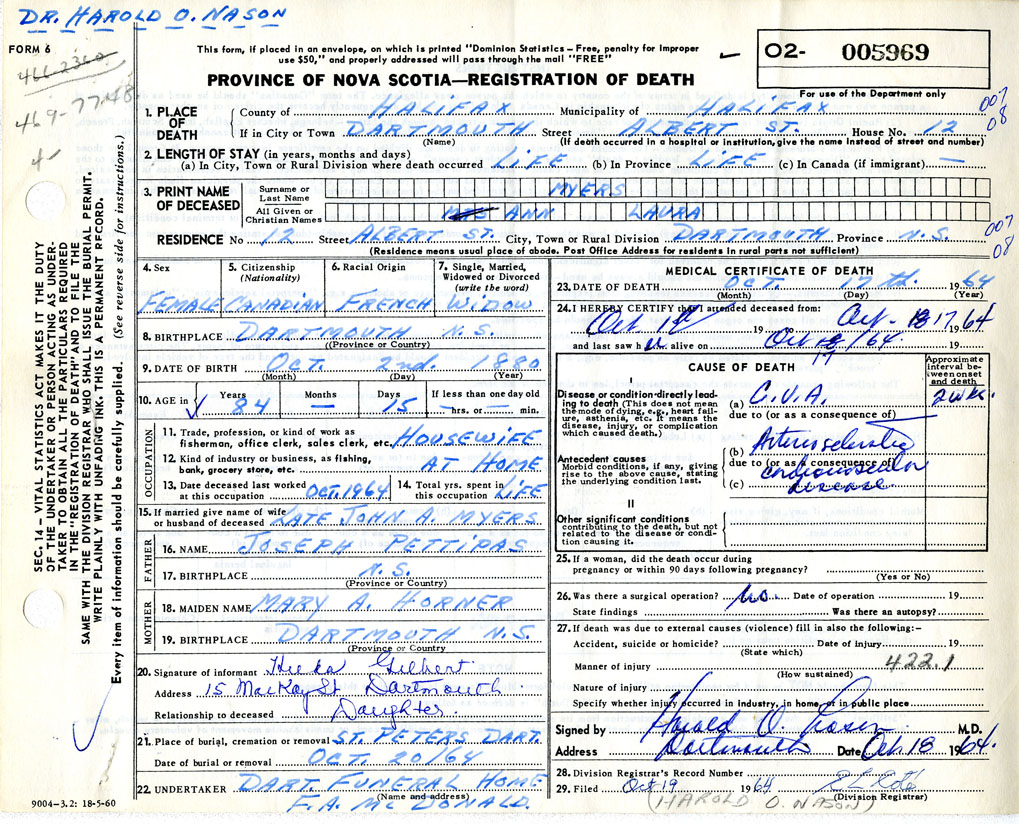 DR. HAROLD O. NASON
FORM 6
466-2360
469-7748
4-
This form, if placed in an envelope, on which is printed "Dominion Statistics—Free, penalty for improper
use $50," and properly addressed will pass through the mail "FREE"
O2- 005969
For use of the Department only
PROVINCE OF NOVA SCOTIA—REGISTRATION OF DEATH
007
08
1. PLACE OF DEATH
County of HALIFAX Municipality of HALIFAX
If in City or Town DARTMOUTH Street ALBERT ST. House No. 12
(Name) (If death occurred in a hospital or institution, give the name instead of street and number)
2. LENGTH OF STAY (in years, months and days)
(a) In City, Town or Rural Division where death occurred LIFE (b) In Province LIFE (c) In Canada (if immigrant) —
3. PRINT NAME OF DECEASED
Surname or Last Name MYERS
All Given or Christian Names MRS ANN LAURA
007
08
RESIDENCE No 12 Street ALBERT ST. City, Town or Rural Division DARTMOUTH Province N.S.
(Residence means usual place of abode. Post Office Address for residents in rural parts not sufficient)
SEC. 14 – VITAL STATISTICS ACT MAKES IT THE DUTY
OF THE UNDERTAKER OR PERSON ACTING AS UNDER-
TAKER TO OBTAIN ALL THE PARTICULARS REQUIRED
IN THE "REGISTRATION OF DEATH" AND TO FILE THE
SAME WITH THE DIVISION REGISTRAR WHO SHALL ISSUE THE BURIAL PERMIT.
WRITE PLAINLY WITH UNFADING INK. THIS IS A PERMANENT RECORD.
Every item of information should be carefully supplied. (See reverse side for instructions.)
4. Sex FEMALE
5. Citizenship (Nationality) CANADIAN
6. Racial Origin FRENCH
7. Single, Married, Widowed or Divorced (write the word) WIDOW
8. BIRTHPLACE DARTMOUTH N.S.
(Province or Country)
9. DATE OF BIRTH OCT. 2nd. 1880
(Month) (Day) (Year)
10. AGE in Years 84 Months — Days 15 If less than one day old — hrs. or — min.
OCCUPATION
11. Trade, profession, or kind of work as
fisherman, office clerk, sales clerk, etc. HOUSEWIFE
12. Kind of industry or business, as fishing,
bank, grocery store, etc. AT HOME
13. Date deceased last worked at this occupation OCT. 1964 14. Total yrs. spent in this occupation LIFE
15. If married give name of wife
or husband of deceased LATE JOHN A. MYERS
FATHER
16. NAME JOSEPH PETTIPAS
17. BIRTHPLACE N.S.
(Province or Country)
MOTHER
18. MAIDEN NAME MARY A. HORNER
19. BIRTHPLACE DARTMOUTH N.S.
(Province or Country)
20. Signature of informant Gilbert
Address 15 MacKay St. Dartmouth
Relationship to deceased Daughter.
21. Place of burial, cremation or removal ST. PETERS DART.
Date of burial or removal OCT. 20/64
22. UNDERTAKER DART. FUNERAL HOME
(Name and address)
F.A. McDONALD.
9004-3.2: 18-5-60
MEDICAL CERTIFICATE OF DEATH
23. DATE OF DEATH OCT. 17th. 1964
(Month) (Day) (Year)
24. I HEREBY CERTIFY that I attended deceased from:
Oct 19 Oct- 17 1964
and last saw h alive on Oct /64. 19
17
CAUSE OF DEATH
Approximate interval between onset and death
I
Disease or condition directly lead-
ing to death (This does not mean
the mode of dying, e.g., heart fail-
ure, asthenia, etc. It means the
disease, injury, or complication
which caused death.)
(a) C.V.A. 2 wks.
due to (or as a consequence of)
Antecedent causes
Morbid conditions, if any, giving
rise to the above cause, stating
the underlying condition last.
(b) Arteriosclerotic
due to (or as a consequence of)
cardiovascular
(c) disease
II
Other significant conditions
contributing to the death, but not
related to the disease or condi-
tion causing it.
25. If a woman, did the death occur during
pregnancy or within 90 days following pregnancy?
(Yes or No)
26. Was there a surgical operation? No. Date of operation 19
State findings Was there an autopsy?
27. If death was due to external causes (violence) fill in also the following:—
Accident, suicide or homicide? Date of injury 19
(State which)
Manner of injury 422.1
(How sustained)
Nature of injury
Specify whether injury occurred in Industry, in home or in public place
Signed by Harold O. Nason M.D.
Address Dartmouth Date Oct 18 1964.
28. Division Registrar's Record Number
29. Filed Oct 19 1964
(Division Registrar)
(HAROLD O. NASON)